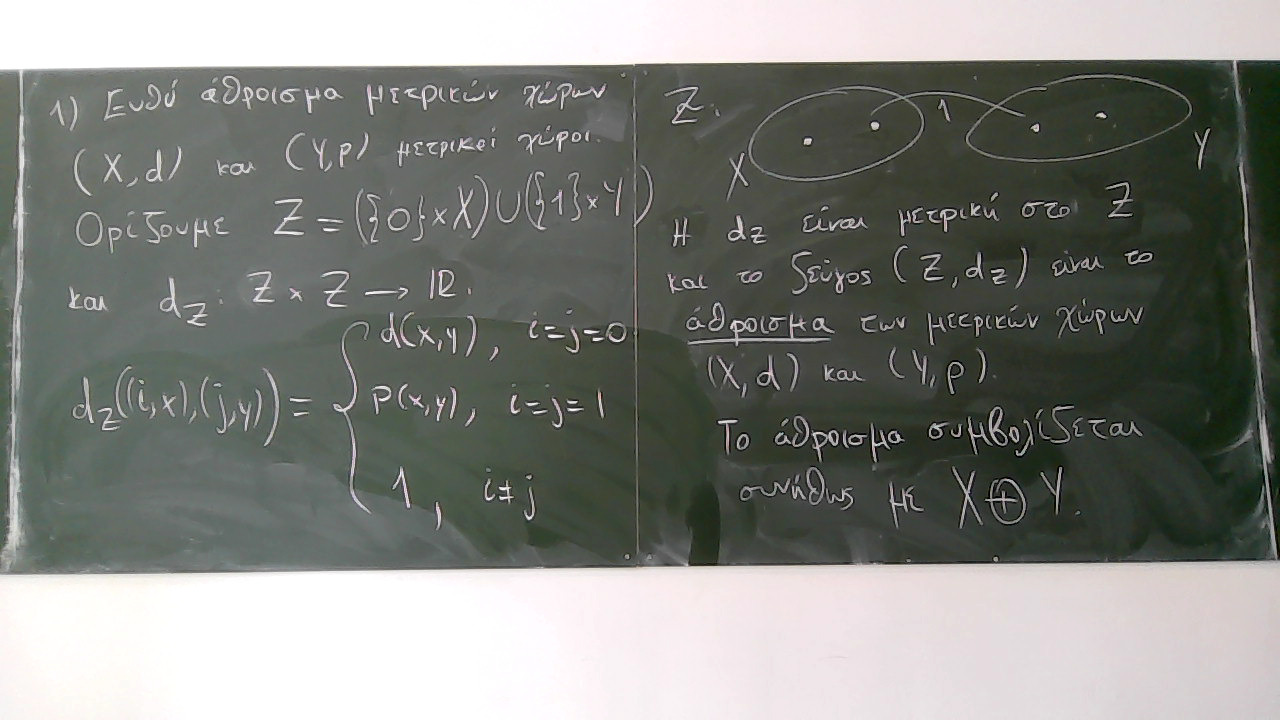 1) Ευθύ άθροισμα μετρικών χώρων
(X,d) και (Y,ρ) μετρικοί χώροι.
Ορίζουμε Z = ({0}×X)∪({1}×Y)
και d_Z : Z × Z → ℝ.
d_Z((i,x),(j,y)) = { d(x,y), i=j=0
ρ(x,y), i=j=1
1, i≠j
Z:
1
X
Y
Η d_Z είναι μετρική στο Z
και το ζεύγος (Z,d_Z) είναι το
άθροισμα των μετρικών χώρων
(X,d) και (Y,ρ).
Το άθροισμα συμβολίζεται
συνήθως με X⊕Y.